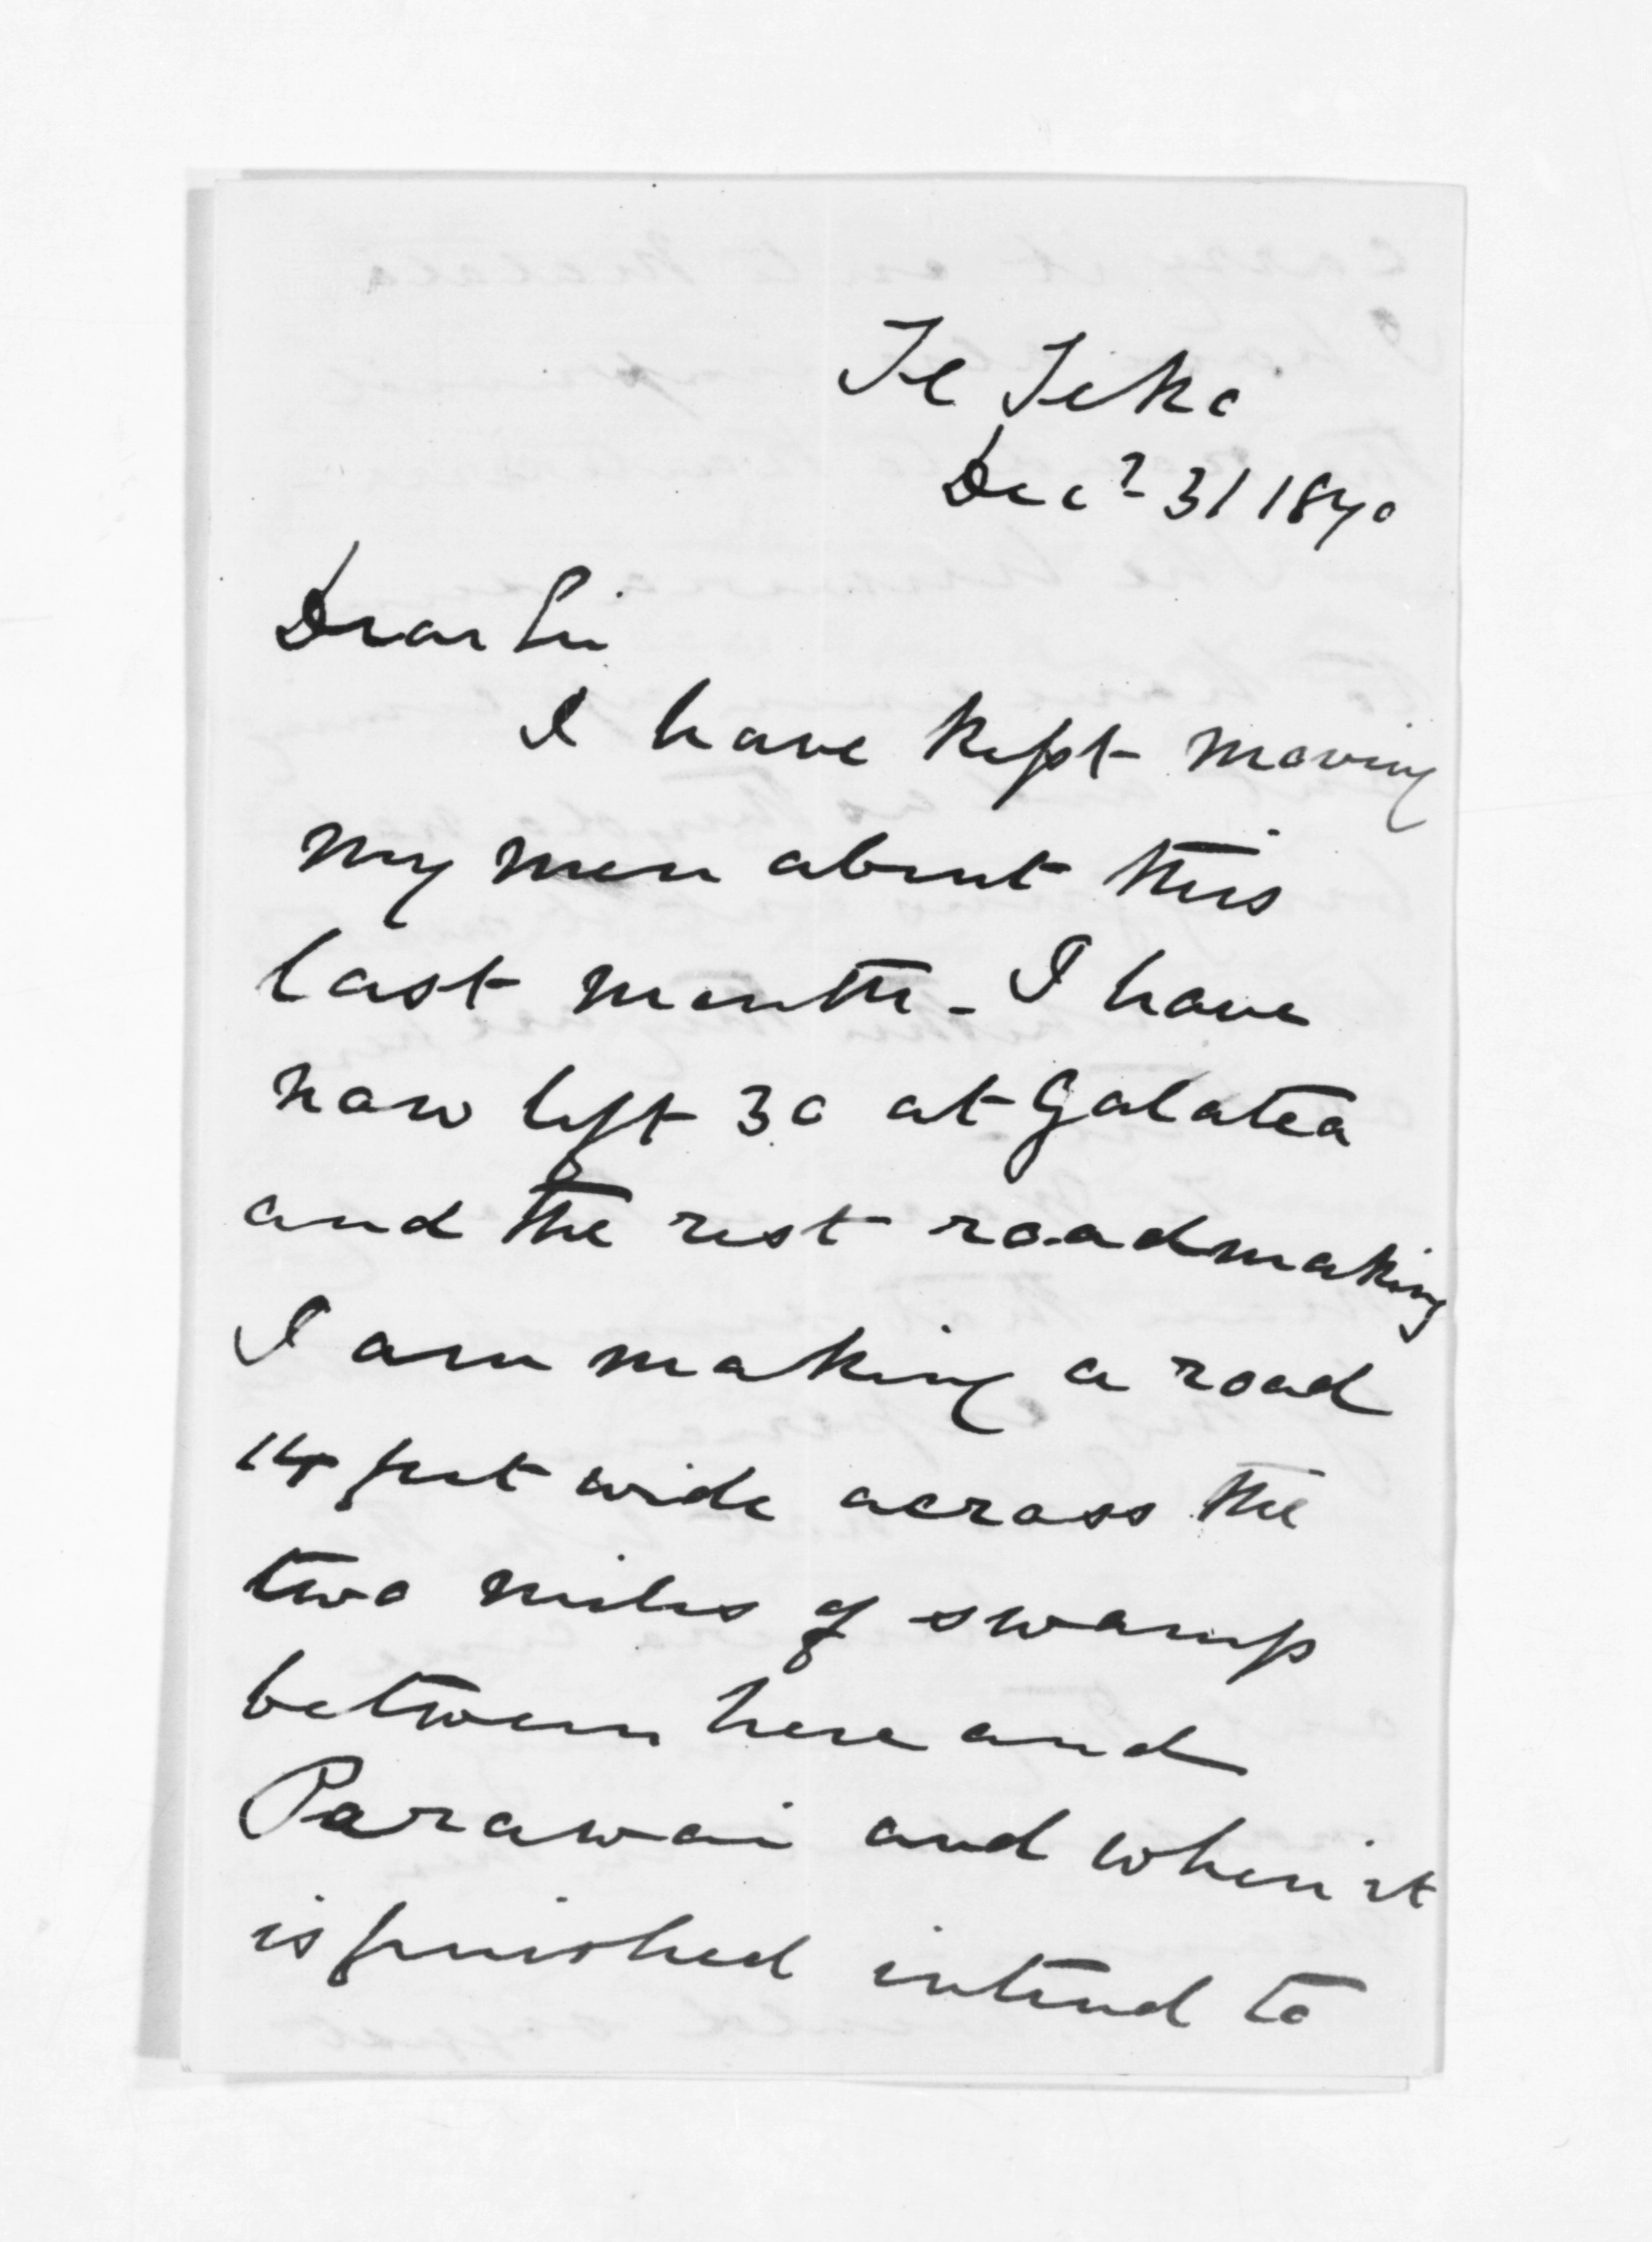 Te Teko
Decr 31 1870
Dear Sir
I have kept moving
my men about this
last month - I have
now left 30 at Galatea
and the rest roadmaking
I am making a road
14 feet wide across the
two miles of swamp
between here and
Parawai and when it
is finished intend to